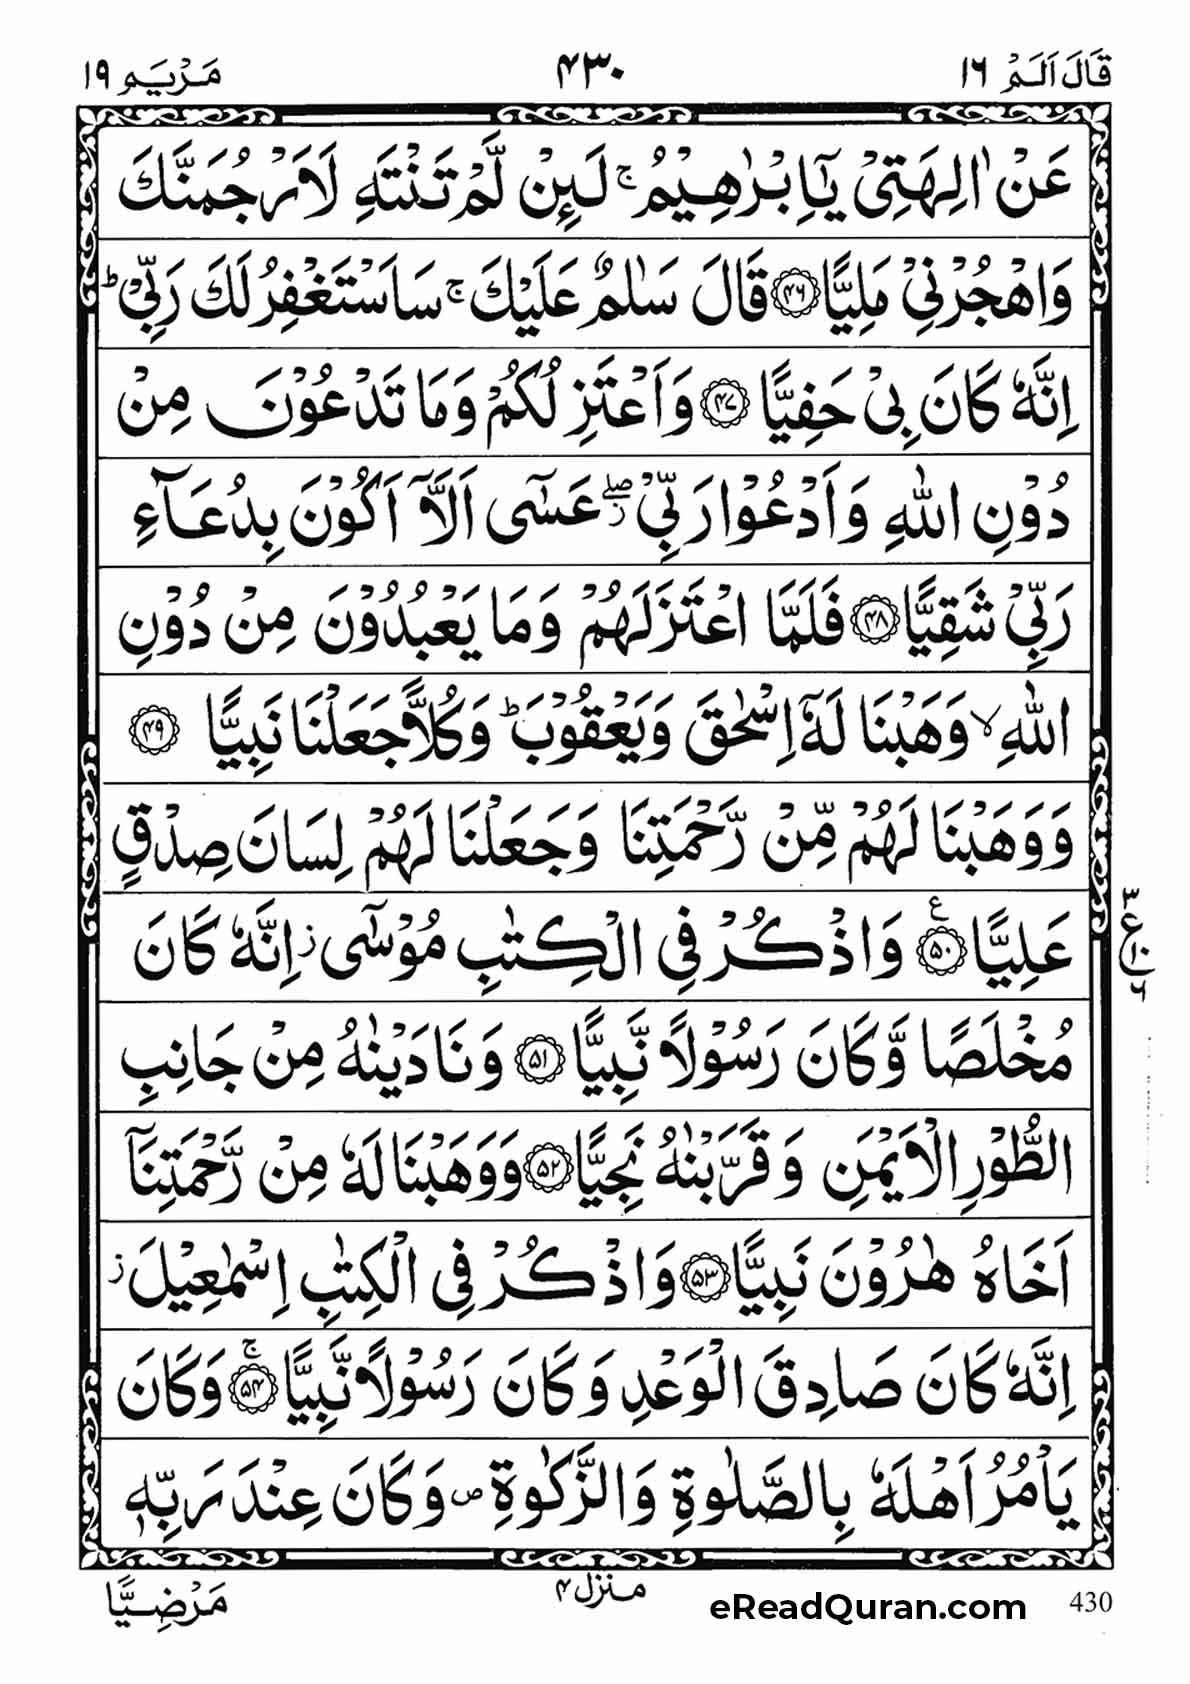 قَالَ اَلَمْ ١٦ ٤٣٠ مَرْيَم ١٩
عَنْ اٰلِهَتِیْ یٰۤاِبْرٰهِیْمُ ۚ لَىِٕنْ لَّمْ تَنْتَهِ لَاَرْجُمَنَّكَ
وَاهْجُرْنِیْ مَلِیًّا ﴿۴۶﴾ قَالَ سَلٰمٌ عَلَیْكَ ۚ سَاَسْتَغْفِرُ لَكَ رَبِّیْ ؕ
اِنَّهٗ كَانَ بِیْ حَفِیًّا ﴿۴۷﴾ وَاَعْتَزِلُكُمْ وَمَا تَدْعُوْنَ مِنْ
دُوْنِ اللّٰهِ وَاَدْعُوْا رَبِّیْ ۖؗ عَسٰۤی اَلَّاۤ اَكُوْنَ بِدُعَآءِ
رَبِّیْ شَقِیًّا ﴿۴۸﴾ فَلَمَّا اعْتَزَلَهُمْ وَمَا یَعْبُدُوْنَ مِنْ دُوْنِ
اللّٰهِ ۙ وَهَبْنَا لَهٗۤ اِسْحٰقَ وَیَعْقُوْبَ ؕ وَكُلًّا جَعَلْنَا نَبِیًّا ﴿۴۹﴾
وَوَهَبْنَا لَهُمْ مِّنْ رَّحْمَتِنَا وَجَعَلْنَا لَهُمْ لِسَانَ صِدْقٍ
عَلِیًّا ﴿۵۰﴾ ع وَاذْكُرْ فِی الْكِتٰبِ مُوْسٰۤی ؗ اِنَّهٗ كَانَ
مُخْلَصًا وَّكَانَ رَسُوْلًا نَّبِیًّا ﴿۵۱﴾ وَنَادَیْنٰهُ مِنْ جَانِبِ
الطُّوْرِ الْاَیْمَنِ وَقَرَّبْنٰهُ نَجِیًّا ﴿۵۲﴾ وَوَهَبْنَا لَهٗ مِنْ رَّحْمَتِنَاۤ
اَخَاهُ هٰرُوْنَ نَبِیًّا ﴿۵۳﴾ وَاذْكُرْ فِی الْكِتٰبِ اِسْمٰعِیْلَ ؗ
اِنَّهٗ كَانَ صَادِقَ الْوَعْدِ وَكَانَ رَسُوْلًا نَّبِیًّا ﴿۵۴﴾ ۚ وَكَانَ
یَاْمُرُ اَهْلَهٗ بِالصَّلٰوةِ وَالزَّكٰوةِ ۪ وَكَانَ عِنْدَ رَبِّهٖ
مَرْضِیًّا منزل ۴ eReadQuran.com 430